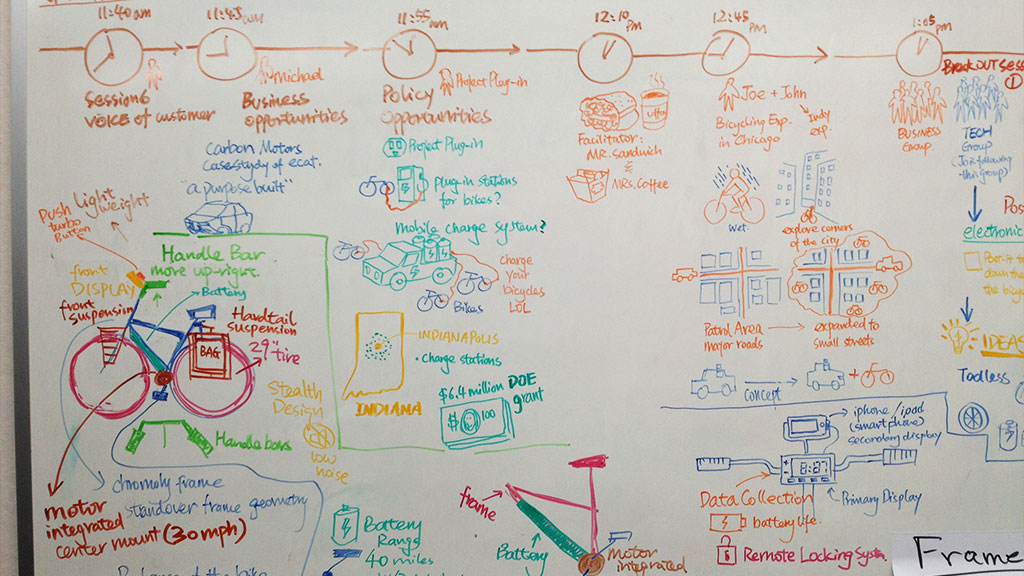 11:40am
11:45am
11:55am
12:10pm
12:45pm
1:05pm
Session 6
VOICE of customer
michael
Business
opportunities
Project Plug-in
Policy
opportunities
Facilitator:
MR. Sandwich
MRS. Coffee
Joe + John
Bicycling Exp.
in Chicago
Indy
exp.
Breakout Sess
1
BUSINESS
Group.
TECH
Group
(Jo is following
this group)
Carbon Motors
Casestudy of ecat.
"a purpose built"
Project Plug-in
plug-in stations
for bikes?
mobile charge system?
charge
your
bicycles
LOL
Bikes
wet.
explore corners
of the city
electronic
Push
turbo
Button
Light
weight
Handle Bar
move up-right.
front
DISPLAY
Battery
front
suspension
Hardtail
suspension
BAG
29" tire
INDIANAPOLIS
• charge stations
INDIANA
$6.4 million DOE
grant
$ 100
Patrol Area
major roads
expanded to
small streets
Concept
IDEAS
Stealth
Design
low
noise
Handle bars
chromoly frame
standover frame geometry
motor
integrated
center mount (30mph)
Battery
Range
40 miles
frame
Battery
motor
integrated
iphone / ipod
(smart phone)
secondary display
8:87
Primary Display
Data Collection
battery life.
Remote Locking System
Frame